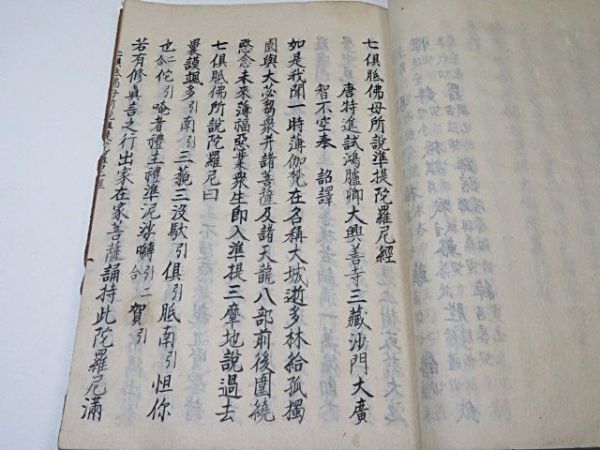 七俱胝佛母所說準提陀羅尼經
唐特進試鴻臚卿大興善寺三藏沙門大廣
智不空奉 詔譯
如是我聞一時薄伽梵在名稱大城逝多林給孤獨
園與大苾芻衆并諸菩薩及諸天龍八部前後圍繞
愍念未來薄福惡業衆生即入準提三摩地說過去
七俱胝佛所說陀羅尼曰
曩謨颯多引南引三藐三沒馱引俱引胝南引怛你
也合二佗引唵者禮主禮準泥娑嚩引二合賀引
若有修眞言之行出家在家菩薩誦持此陀羅尼滿